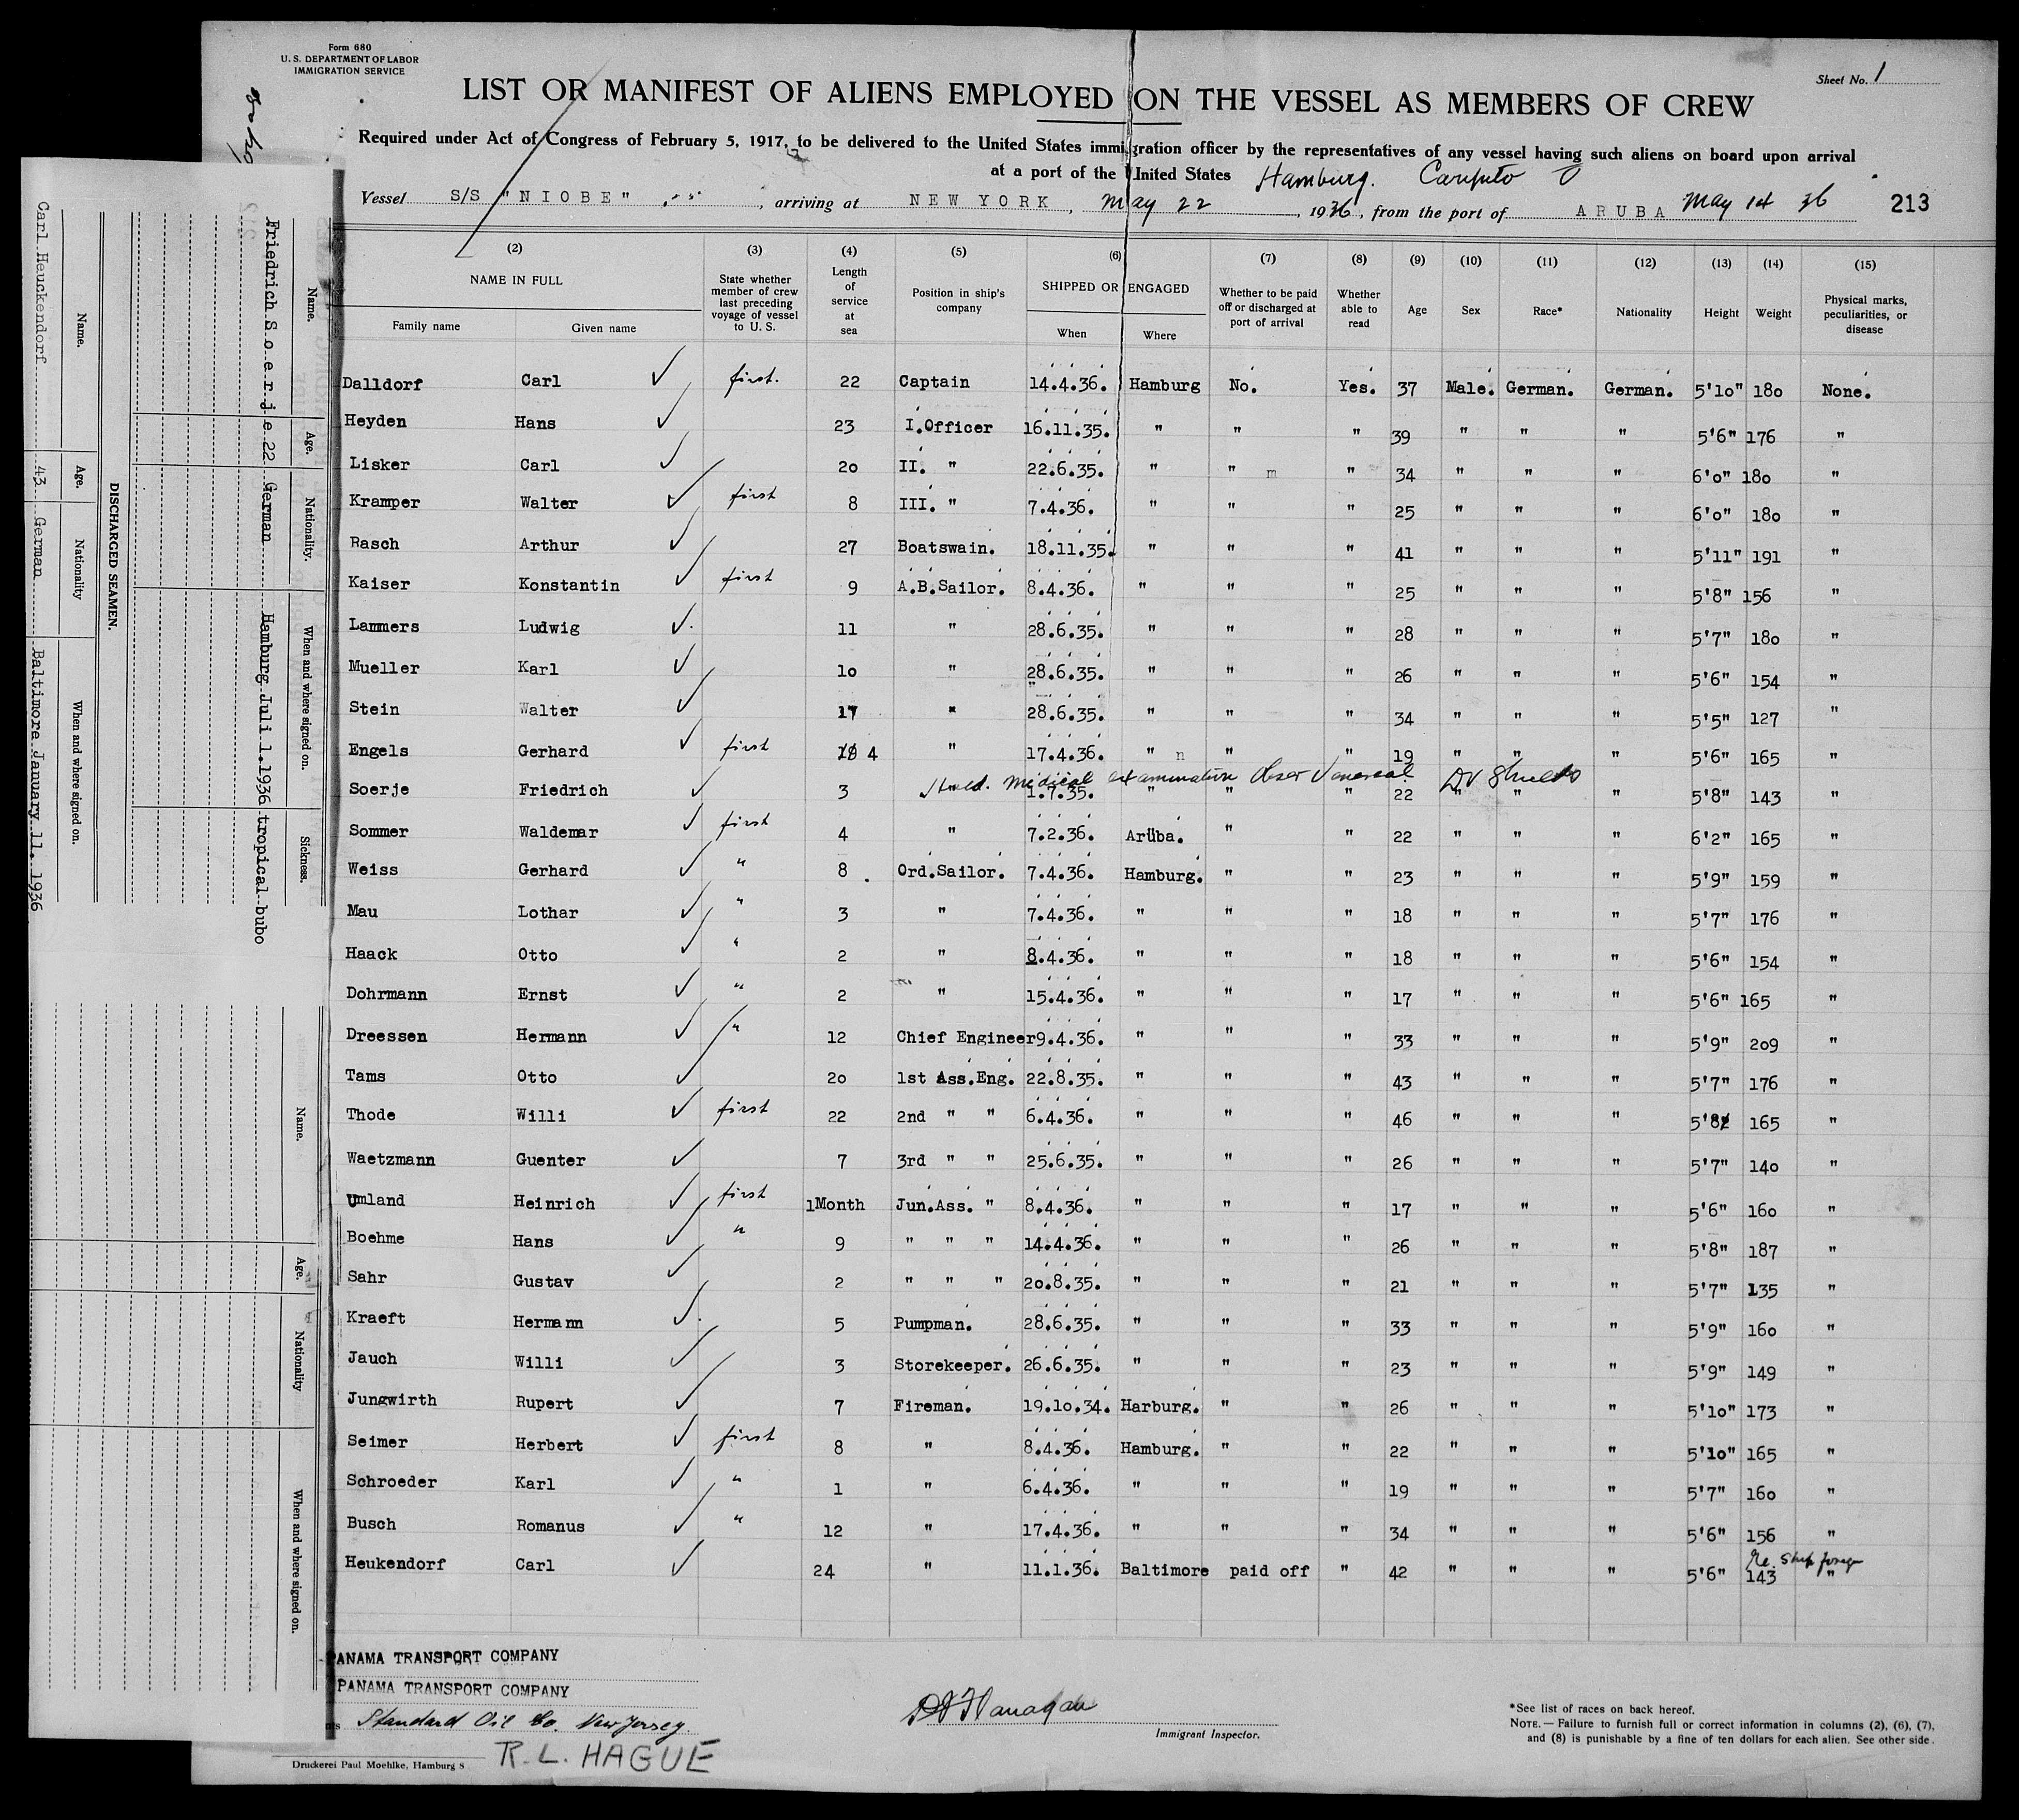 Form 680
U. S. DEPARTMENT OF LABOR
IMMIGRATION SERVICE
Sheet No. 1
LIST OR MANIFEST OF ALIENS EMPLOYED ON THE VESSEL AS MEMBERS OF CREW
Required under Act of Congress of February 5, 1917, to be delivered to the United States immigration officer by the representatives of any vessel having such aliens on board upon arrival
at a port of the United States Hamburg.
Vessel S/S "NIOBE", arriving at NEW YORK, May 22, 1936, from the port of ARUBA May 1st 36 213
(2) (3) (4) (5) (6) (7) (8) (9) (10) (11) (12) (13) (14) (15)
NAME IN FULL Family name Given name State whether member of crew last preceding voyage of vessel to U. S. Length of service at sea Position in ship's company SHIPPED OR ENGAGED When Where Whether to be paid off or discharged at port of arrival Whether able to read Age Sex Race* Nationality Height Weight Physical marks, peculiarities, or disease
Dalldorf Carl ✓ first. 22 Captain 14.4.36. Hamburg No. Yes. 37 Male. German. German. 5'10" 180 None.
Heyden Hans ✓ 23 I.Officer 16.11.35. " " " 39 " " " 5'6" 176 "
Lisker Carl ✓ 20 II. " 22.6.35. " " m " 34 " " " 6'0" 180 "
Kramper Walter ✓ first 8 III. " 7.4.36. " " " 25 " " " 6'0" 180 "
Rasch Arthur ✓ 27 Boatswain. 18.11.35. " " " 41 " " " 5'11" 191 "
Kaiser Konstantin ✓ first 9 A.B.Sailor. 8.4.36. " " " 25 " " " 5'8" 156 "
Lammers Ludwig ✓ 11 " 28.6.35. " " " 28 " " " 5'7" 180 "
Mueller Karl ✓ 10 " 28.6.35. " " " 26 " " " 5'6" 154 "
Stein Walter ✓ 17 " 28.6.35. " " " 34 " " " 5'5" 127 "
Engels Gerhard ✓ first 4 " 17.4.36. " n " " 19 " " " 5'6" 165 "
Held. Medical examination
Soerje Friedrich ✓ 3 " 1.7.35. " " " 22 " " " 5'8" 143 "
Sommer Waldemar ✓ first 4 " 7.2.36. Arüba. " " 22 " " " 6'2" 165 "
Weiss Gerhard ✓ " 8 Ord.Sailor. 7.4.36. Hamburg. " " 23 " " " 5'9" 159 "
Mau Lothar ✓ " 3 " 7.4.36. " " " 18 " " " 5'7" 176 "
Haack Otto ✓ " 2 " 8.4.36. " " " 18 " " " 5'6" 154 "
Dohrmann Ernst ✓ " 2 " 15.4.36. " " " 17 " " " 5'6" 165 "
Dreessen Hermann ✓ " 12 Chief Engineer 9.4.36. " " " 33 " " " 5'9" 209 "
Tams Otto ✓ 20 1st Ass.Eng. 22.8.35. " " " 43 " " " 5'7" 176 "
Thode Willi ✓ first 22 2nd " " 6.4.36. " " " 46 " " " 5'8 165 "
Waetzmann Guenter ✓ 7 3rd " " 25.6.35. " " " 26 " " " 5'7" 140 "
Umland Heinrich ✓ first 1Month Jun.Ass. " 8.4.36. " " " 17 " " " 5'6" 160 "
Boehme Hans ✓ " 9 " " " 14.4.36. " " " 26 " " " 5'8" 187 "
Sahr Gustav ✓ 2 " " " 20.8.35. " " " 21 " " " 5'7" 135 "
Kraeft Hermann ✓ 5 Pumpman. 28.6.35. " " " 33 " " " 5'9" 160 "
Jauch Willi ✓ 3 Storekeeper. 26.6.35. " " " 23 " " " 5'9" 149 "
Jungwirth Rupert ✓ 7 Fireman. 19.10.34. Harburg. " " 26 " " " 5'10" 173 "
Seimer Herbert ✓ first 8 " 8.4.36. Hamburg. " " 22 " " " 5'10" 165 "
Schroeder Karl ✓ " 1 " 6.4.36. " " " 19 " " " 5'7" 160 "
Busch Romanus ✓ " 12 " 17.4.36. " " " 34 " " " 5'6" 156 "
Re. Ship foreign
Heukendorf Carl ✓ 24 " 11.1.36. Baltimore paid off " 42 " " " 5'6" 143 "
PANAMA TRANSPORT COMPANY
PANAMA TRANSPORT COMPANY
Standard Oil Co. New Jersey.
R. L. HAGUE
Immigrant Inspector.
*See list of races on back hereof.
NOTE.— Failure to furnish full or correct information in columns (2), (6), (7),
and (8) is punishable by a fine of ten dollars for each alien. See other side.
Druckerei Paul Moehlke, Hamburg 8
Name. Age. Nationality. When and where signed on. Sickness.
Friedrich Soerje 22 German Hamburg Juli 1.1936 tropical bubo
DISCHARGED SEAMEN.
Name. Age. Nationality When and where signed on.
Carl Heuckendorf 43 German Baltimore January 11. 1936
Name. Age. Nationality When and where signed on.